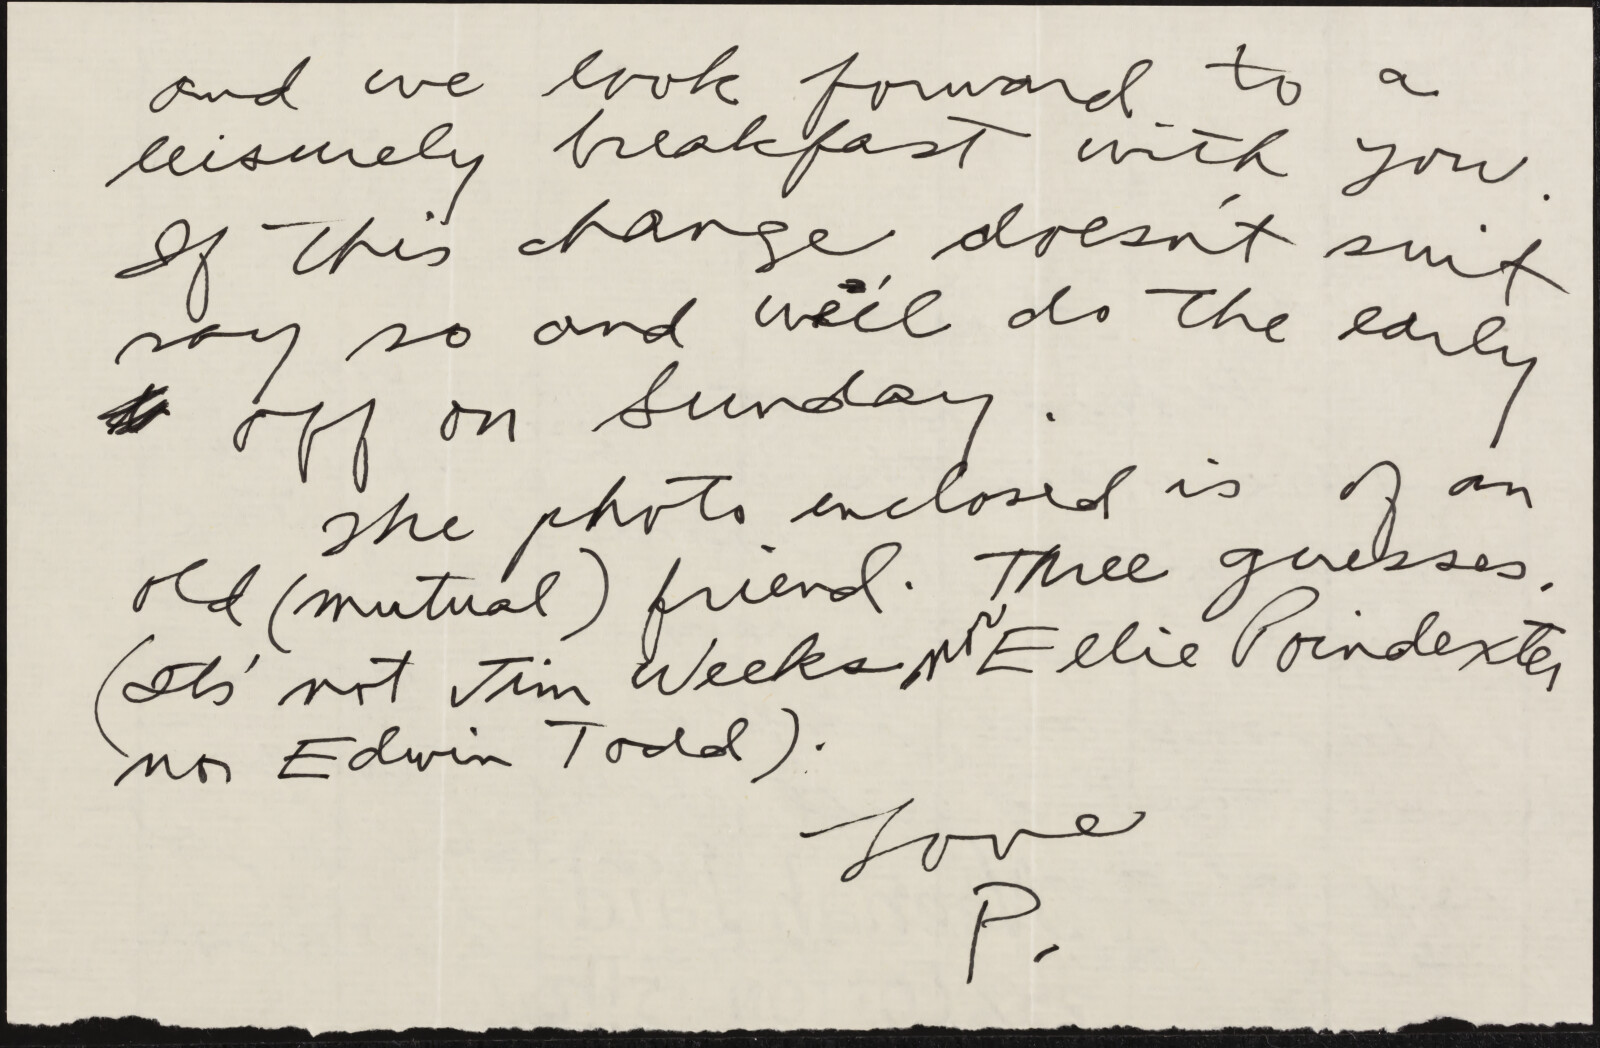 and we look forward to a
leisurely breakfast with you.
If this change doesn't suit
say so and we'll do the early
off on Sunday.
The photo enclosed is of an
old (mutual) friend. Three guesses.
(It's not Jim Weeks nor Ellie Poindexter
nor Edwin Todd).
Love
P.